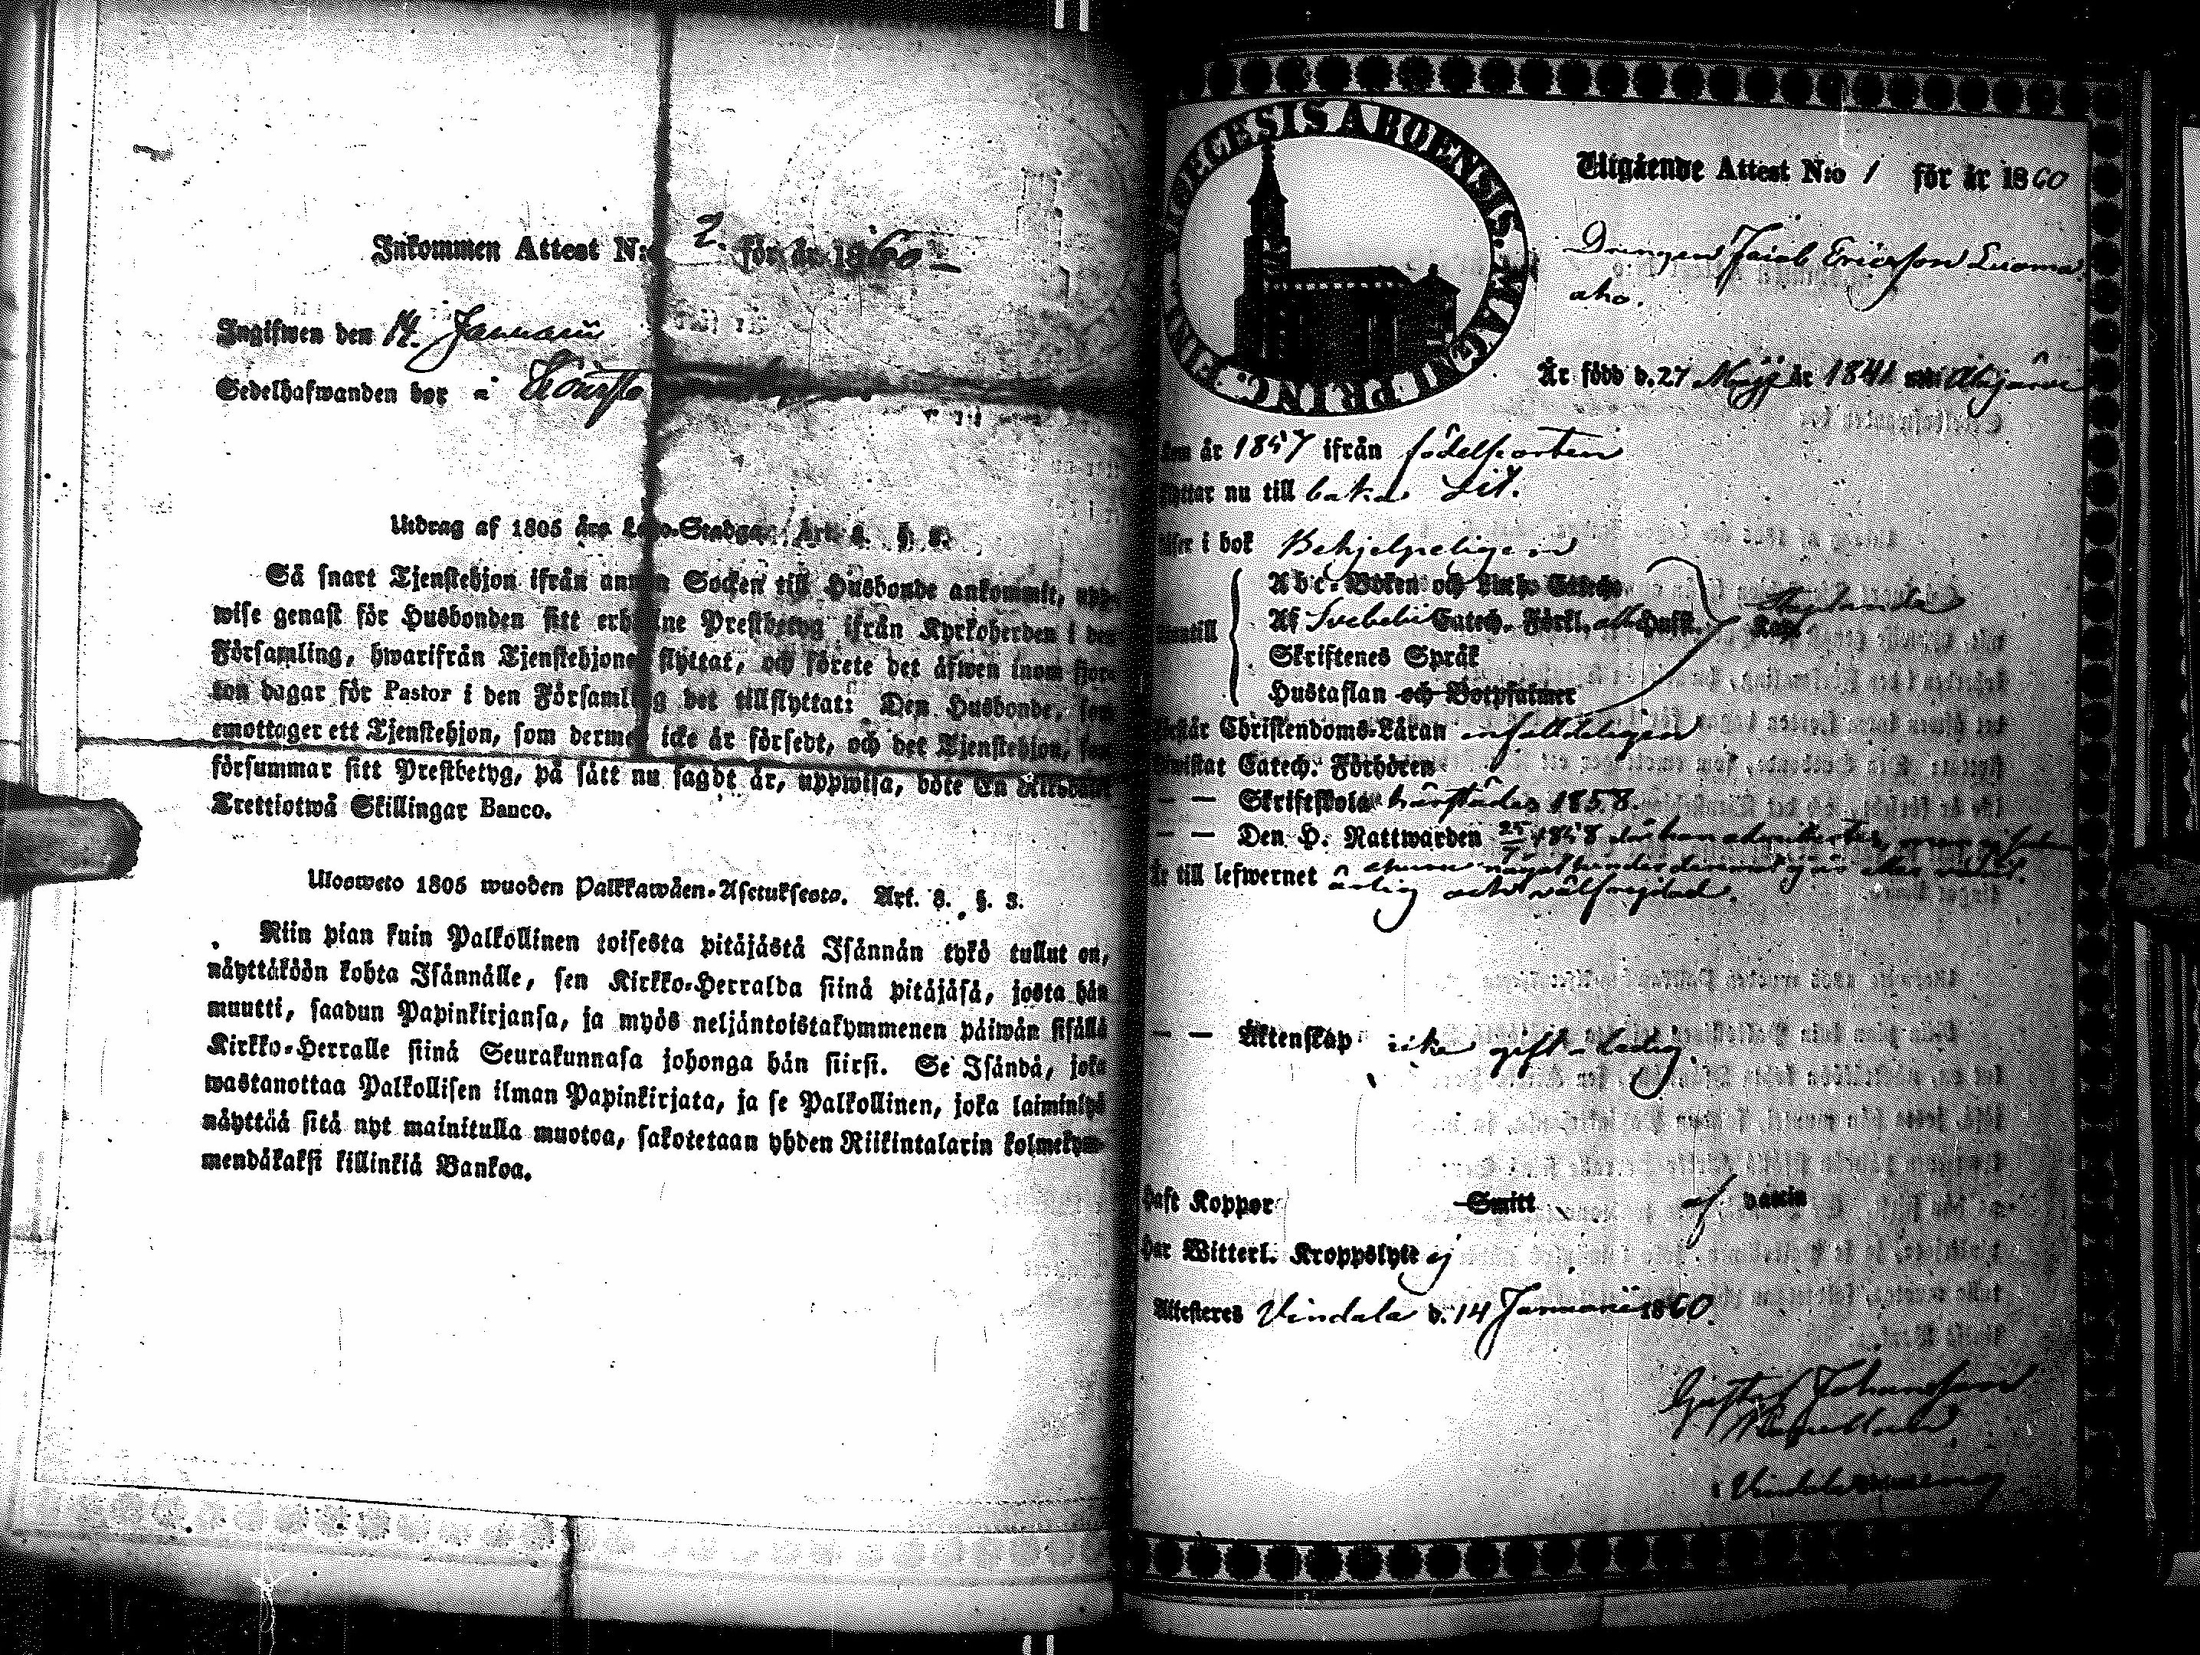 Inkommen Attest N:o 2. för år 1860
Ingifwen den 14. Januarii
Sedelhafwanden bor i
Utdrag af 1805 års Lego-Stadga. Art. 8. §. 3.
Så snart Tjenstehjon ifrån annan Socken till Husbonde ankommit, upp-
wise genast för Husbonden sitt erhållne Prestbetyg ifrån Kyrkoherden i den
Församling, hwarifrån Tjenstehjonet flyttat, och förete det äfwen inom fjor-
ton dagar för Pastor i den Församling det tillflyttat: Den Husbonde, som
emottager ett Tjenstehjon, som dermed icke är försedt, och det Tjenstehjon, som
försummar sitt Prestbetyg, på sätt nu sagdt är, uppwisa, böte En Riksdaler
Trettiotwå Skillingar Banco.
Ulosweto 1805 wuoden Palkkawäen-Asetuksesta. Art. 8. §. 3.
Niin pian kuin Palkollinen toisesta pitäjästä Isännän tykö tullut on,
näyttäköön kohta Isännälle, sen Kirkko-Herralda siinä pitäjäsä, josta hän
muutti, saadun Papinkirjansa, ja myös neljäntoistakymmenen päiwän sisällä
Kirkko-Herralle siinä Seurakunnasa johonga hän siirsi. Se Isändä, joka
wastanottaa Palkollisen ilman Papinkirjata, ja se Palkollinen, joka laiminlyö
näyttää sitä nyt mainitulla muotoa, sakotetaan yhden Riikintalarin kolmekym-
mendäkaksi killinkiä Bankoa.
DIOECESIS ABOENSIS. MAGNI PRINC. FINL.
Utgående Attest N:o 1 för år 1860
Drengen Jacob Ericsson Luoma
aho.
Är född d. 27 Maji år 1841 uti Alajärvi
kom år 1857 ifrån födelseorten
flyttar nu till
läser i bok Behjelpeligen
Abc-Boken och Luth. Cateches
Af Svebelii Catech. Förkl. Hust.
Skriftenes Språk
Hustaflan och Botpsalmer
förstår Christendoms-Läran enfaldeligen
bewistat Catech. Förhören
— — Skriftskola härstädes 1858.
— — Den H. Nattwarden 1858 då han admitterades,
Är till lefwernet ärlig och välfrejdad.
— — Äktenskap icke gift - ledig.
haft Koppor Smitt af vaccin
Har Witterl. Kroppslyte ej
Attesteras Vindala d. 14 Januarii 1860.
Gustaf Johansson